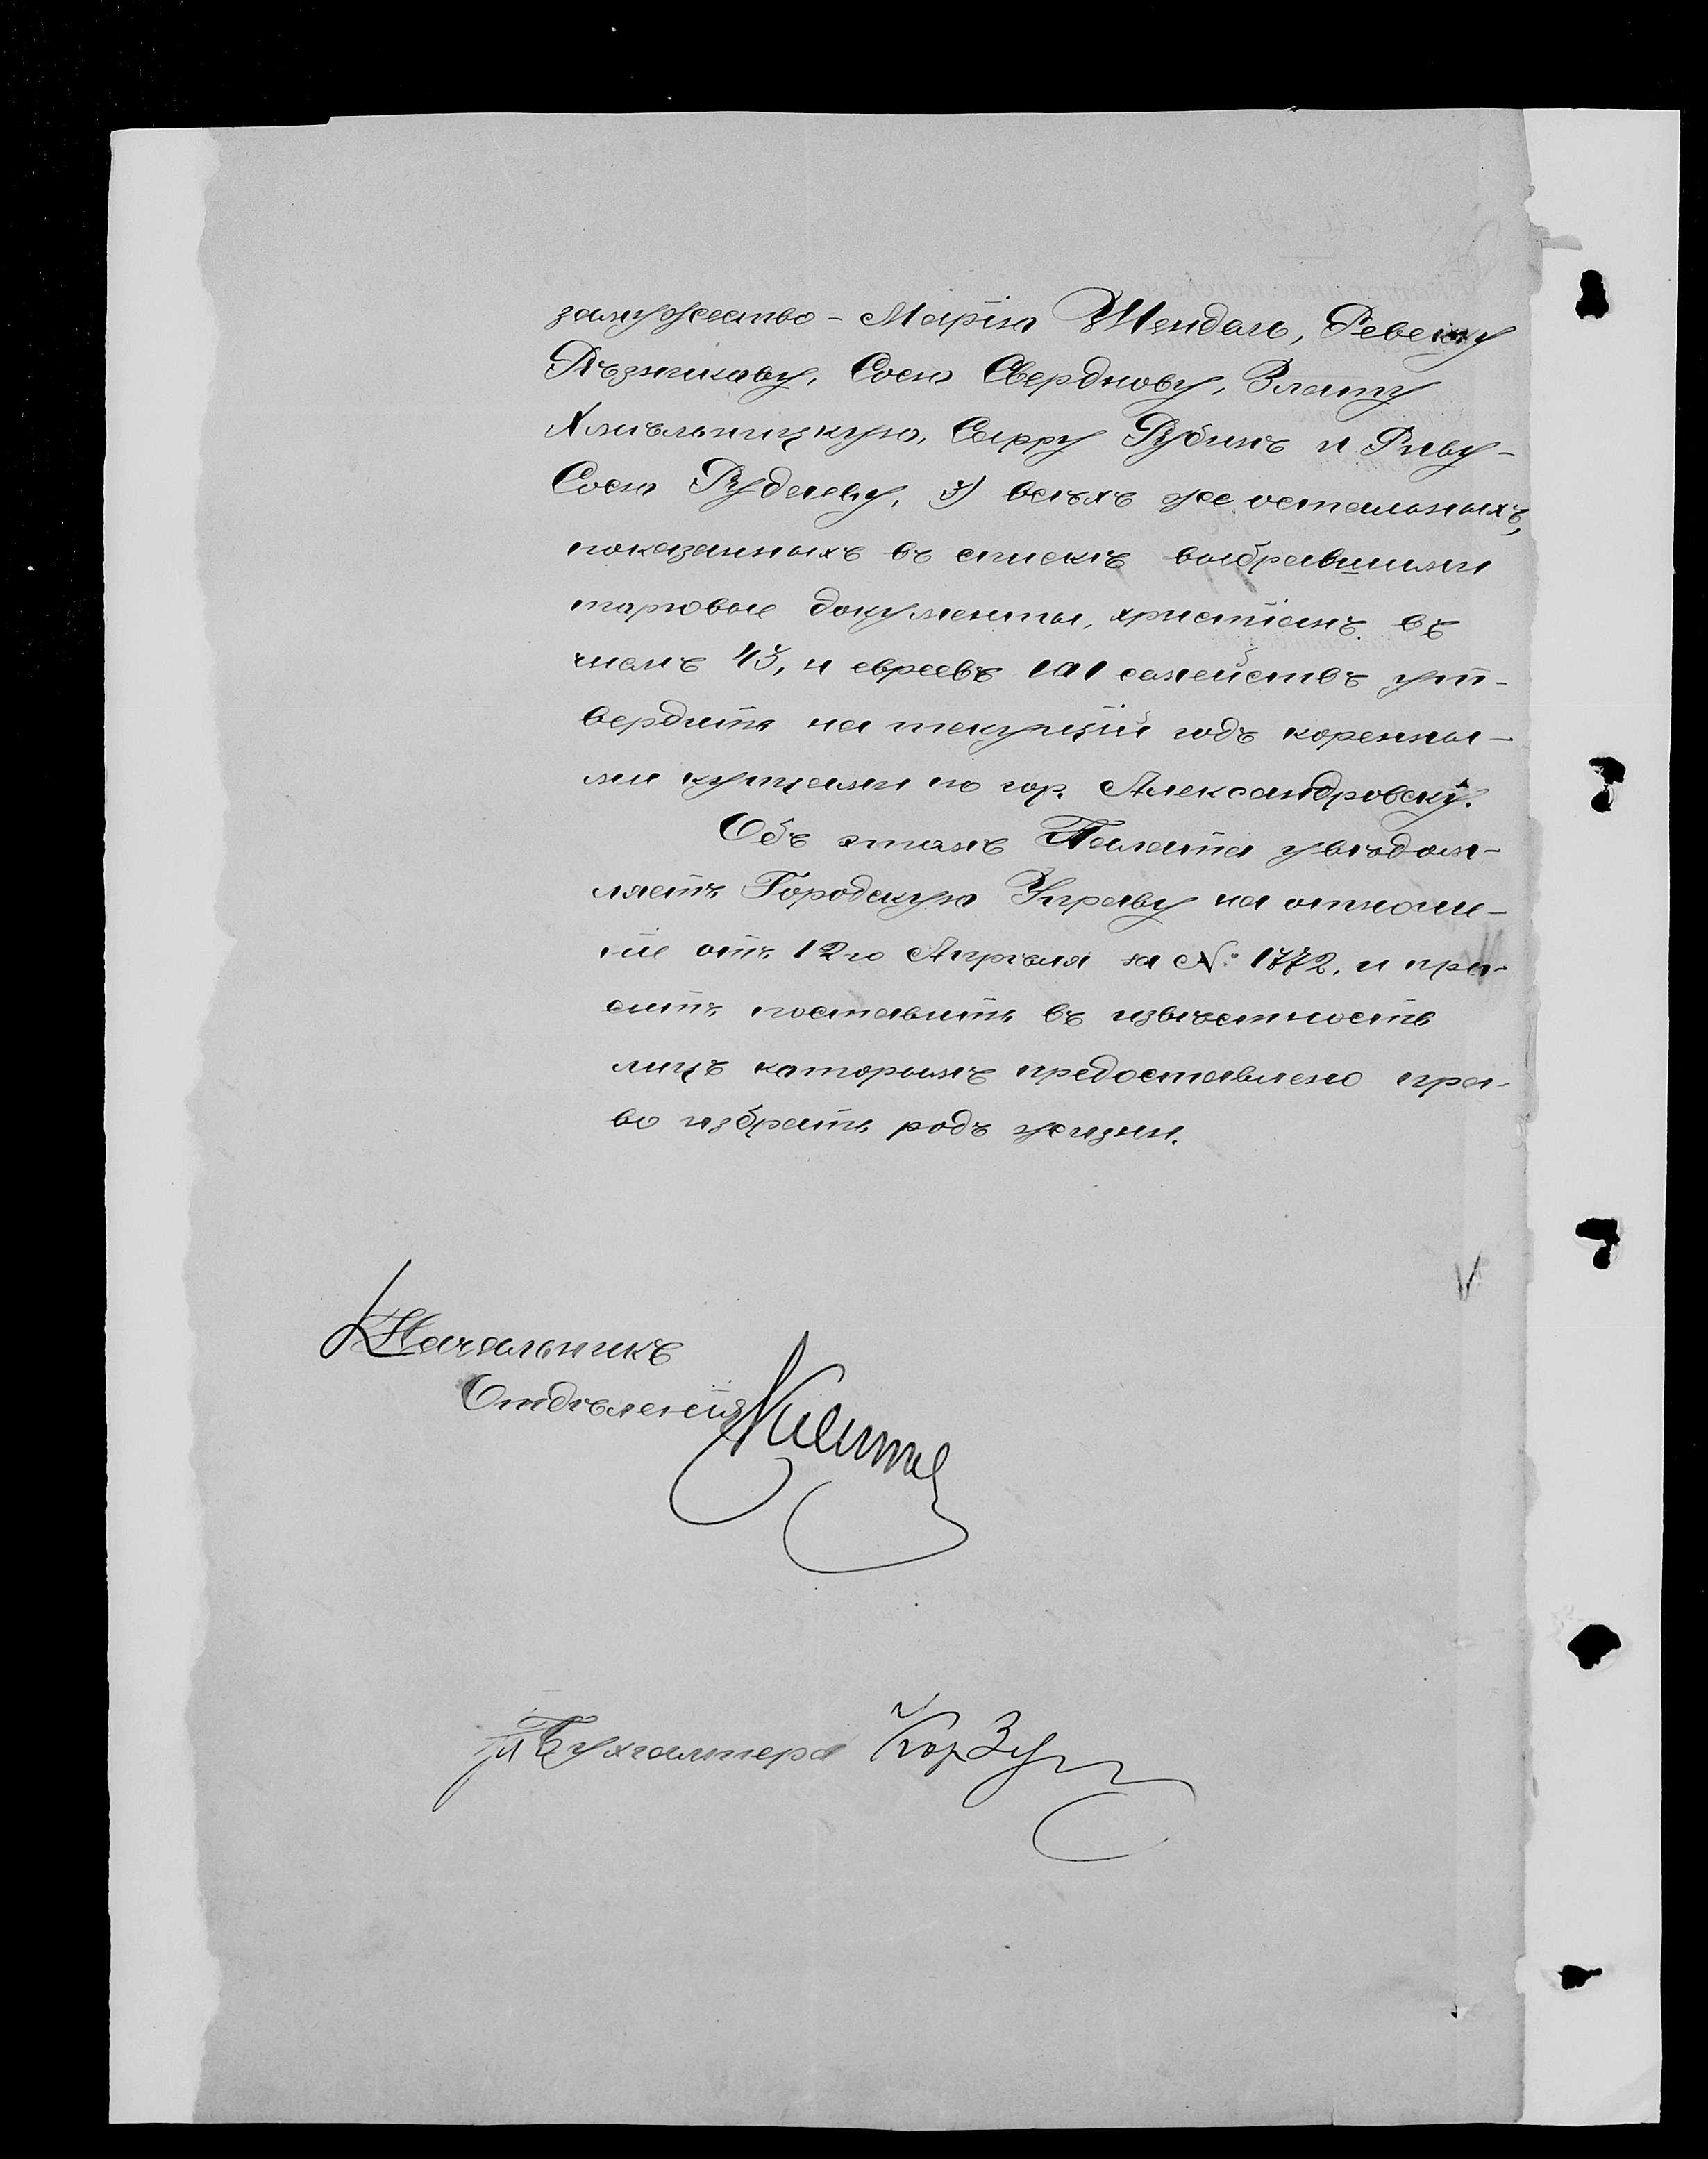 замужество - Марію Шендаль, Ревекку
Рѣзникову, Сосю Свердлову, Злату
Хмѣльницкую, Сарру Рубинъ и Риву-
Сосю Рудяеву, 3) всѣхъ же остальныхъ,
показанныхъ въ спискѣ выбравшими
торговые документы, христіанъ въ
числѣ 43, и евреевъ 101 семействъ ут-
вердить на текущій годъ коренны-
ми купцами по гор. Александровску.
Объ этомъ Палата увѣдом-
ляетъ Городскую Управу на отноше-
ніе отъ 12го Апрѣля за № 1772, и про-
ситъ поставить въ извѣстность
лицъ которымъ предоставлено пра-
во избрать родъ жизни.
Начальникъ
Отдѣленія
Бухгалтера Корзун